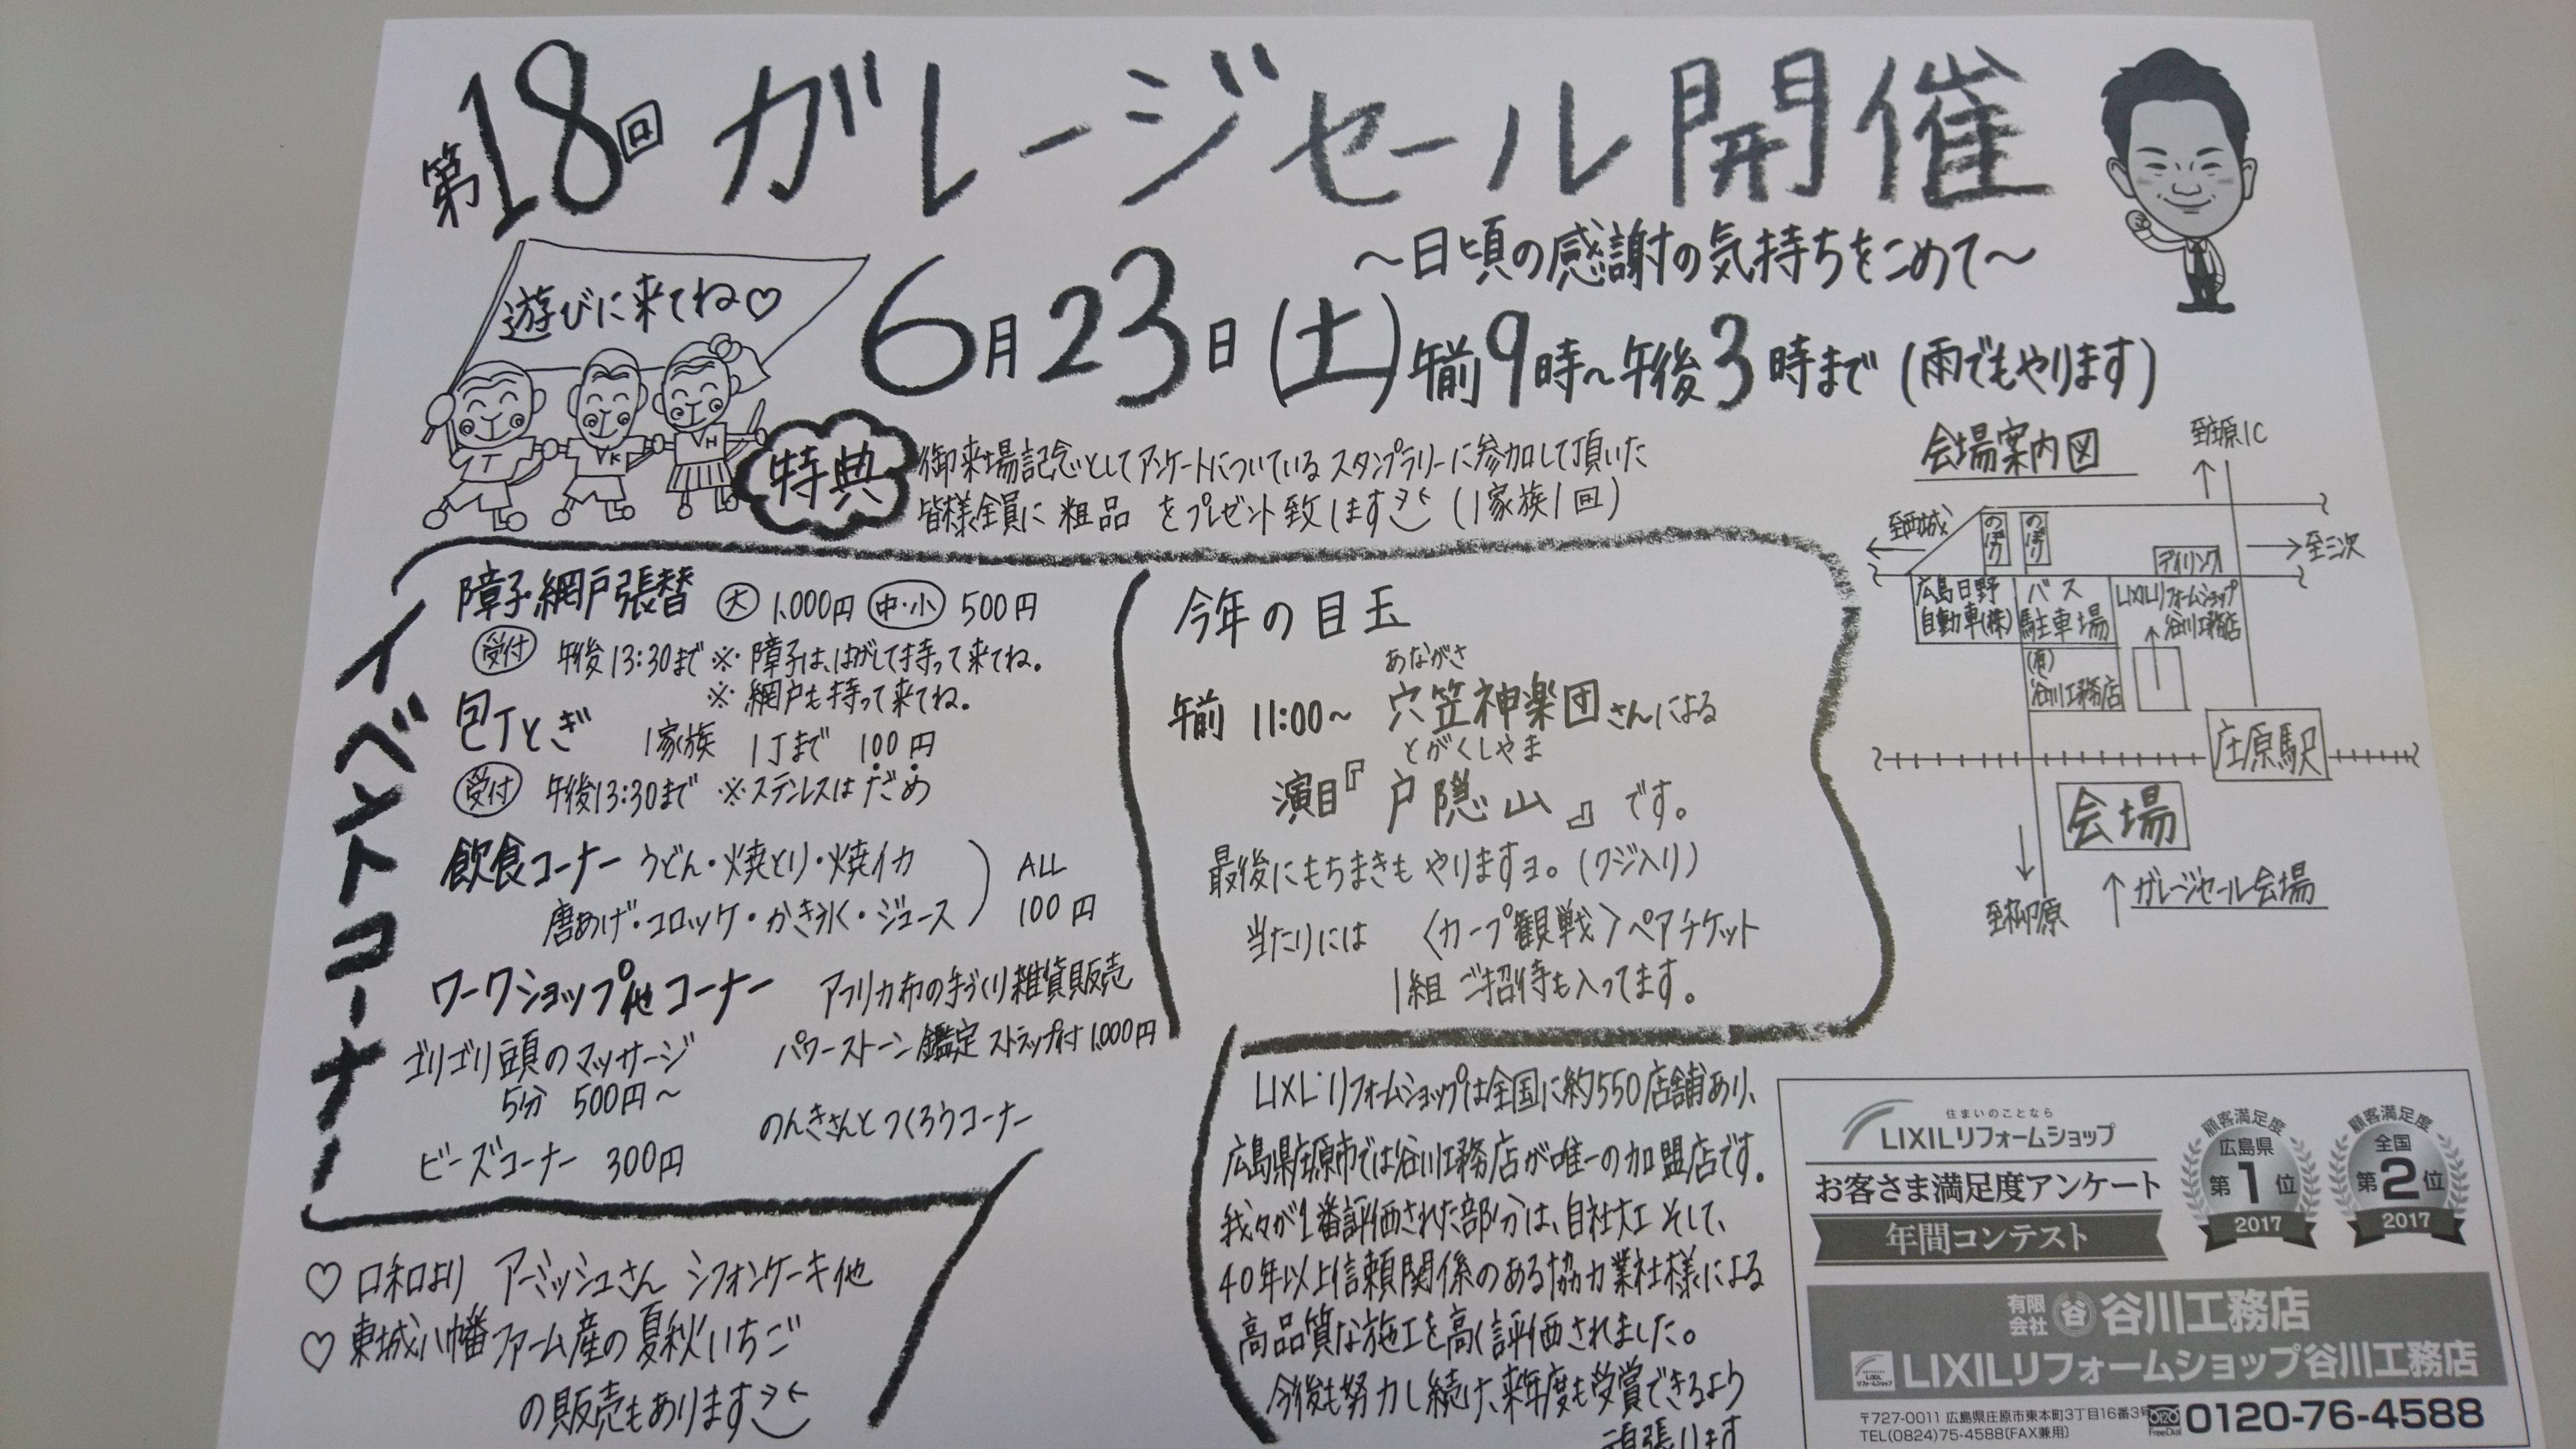 第18回 ガレージセール開催
～日頃の感謝の気持ちをこめて～
遊びに来てね♡
6月23日(土)午前9時～午後3時まで(雨でもやります)
T
K
H
特典
御来場記念としてアンケートについているスタンプラリーに参加して頂いた
皆様全員に 粗品 をプレゼント致します (1家族1回)
イベントコーナー
障子・網戸張替 大 1,000円 中・小 500円
受付 午後13:30まで ※障子は、はがして持って来てね。
※網戸も持って来てね。
包丁とぎ 1家族 1丁まで 100円
受付 午後13:30まで ※ステンレスはだめ
飲食コーナー うどん・焼とり・焼イカ
唐あげ・コロッケ・かき氷・ジュース
) ALL
100円
ワークショップ他コーナー アフリカ布の手づくり雑貨販売
ゴリゴリ頭のマッサージ
5分 500円～
パワーストーン鑑定 ストラップ付 1,000円
ビーズコーナー 300円
のんきさんとつくろうコーナー
♡ 口和より アーミッシュさん シフォンケーキ他
♡ 東城八幡ファーム産の夏秋いちご
の販売もあります
今年の目玉
あながさ
午前 11:00～ 穴笠神楽団さんによる
とがくしやま
演目『戸隠山』です。
最後にもちまきもやりますヨ。(クジ入り)
当たりには 〈カープ観戦〉ペアチケット
1組 ご招待も入ってます。
LIXILリフォームショップは全国に約550店舗あり、
広島県庄原市では谷川工務店が唯一の加盟店です。
我々が1番評価された部分は、自社大工 そして、
40年以上信頼関係のある協力業社様による
高品質な施工を高く評価されました。
今後も努力し続け、来年度も受賞できるよう
頑張ります
会場案内図
至庄原IC
至西城
のぼり
のぼり
アイリンク
至三次
広島日野
自動車(株)
バス
駐車場
LIXILリフォームショップ
谷川工務店
(有)
谷川工務店
庄原駅
会場
↑ガレージセール会場
住まいのことなら
LIXILリフォームショップ
お客さま満足度アンケート
年間コンテスト
顧客満足度
広島県
第1位
2017
顧客満足度
全国
第2位
2017
有限会社 谷 谷川工務店
LIXIL
リフォームショップ
LIXILリフォームショップ谷川工務店
〒727-0011 広島県庄原市東本町3丁目16番3号
TEL(0824)75-4588(FAX兼用)
0120
FreeDial
0120-76-4588